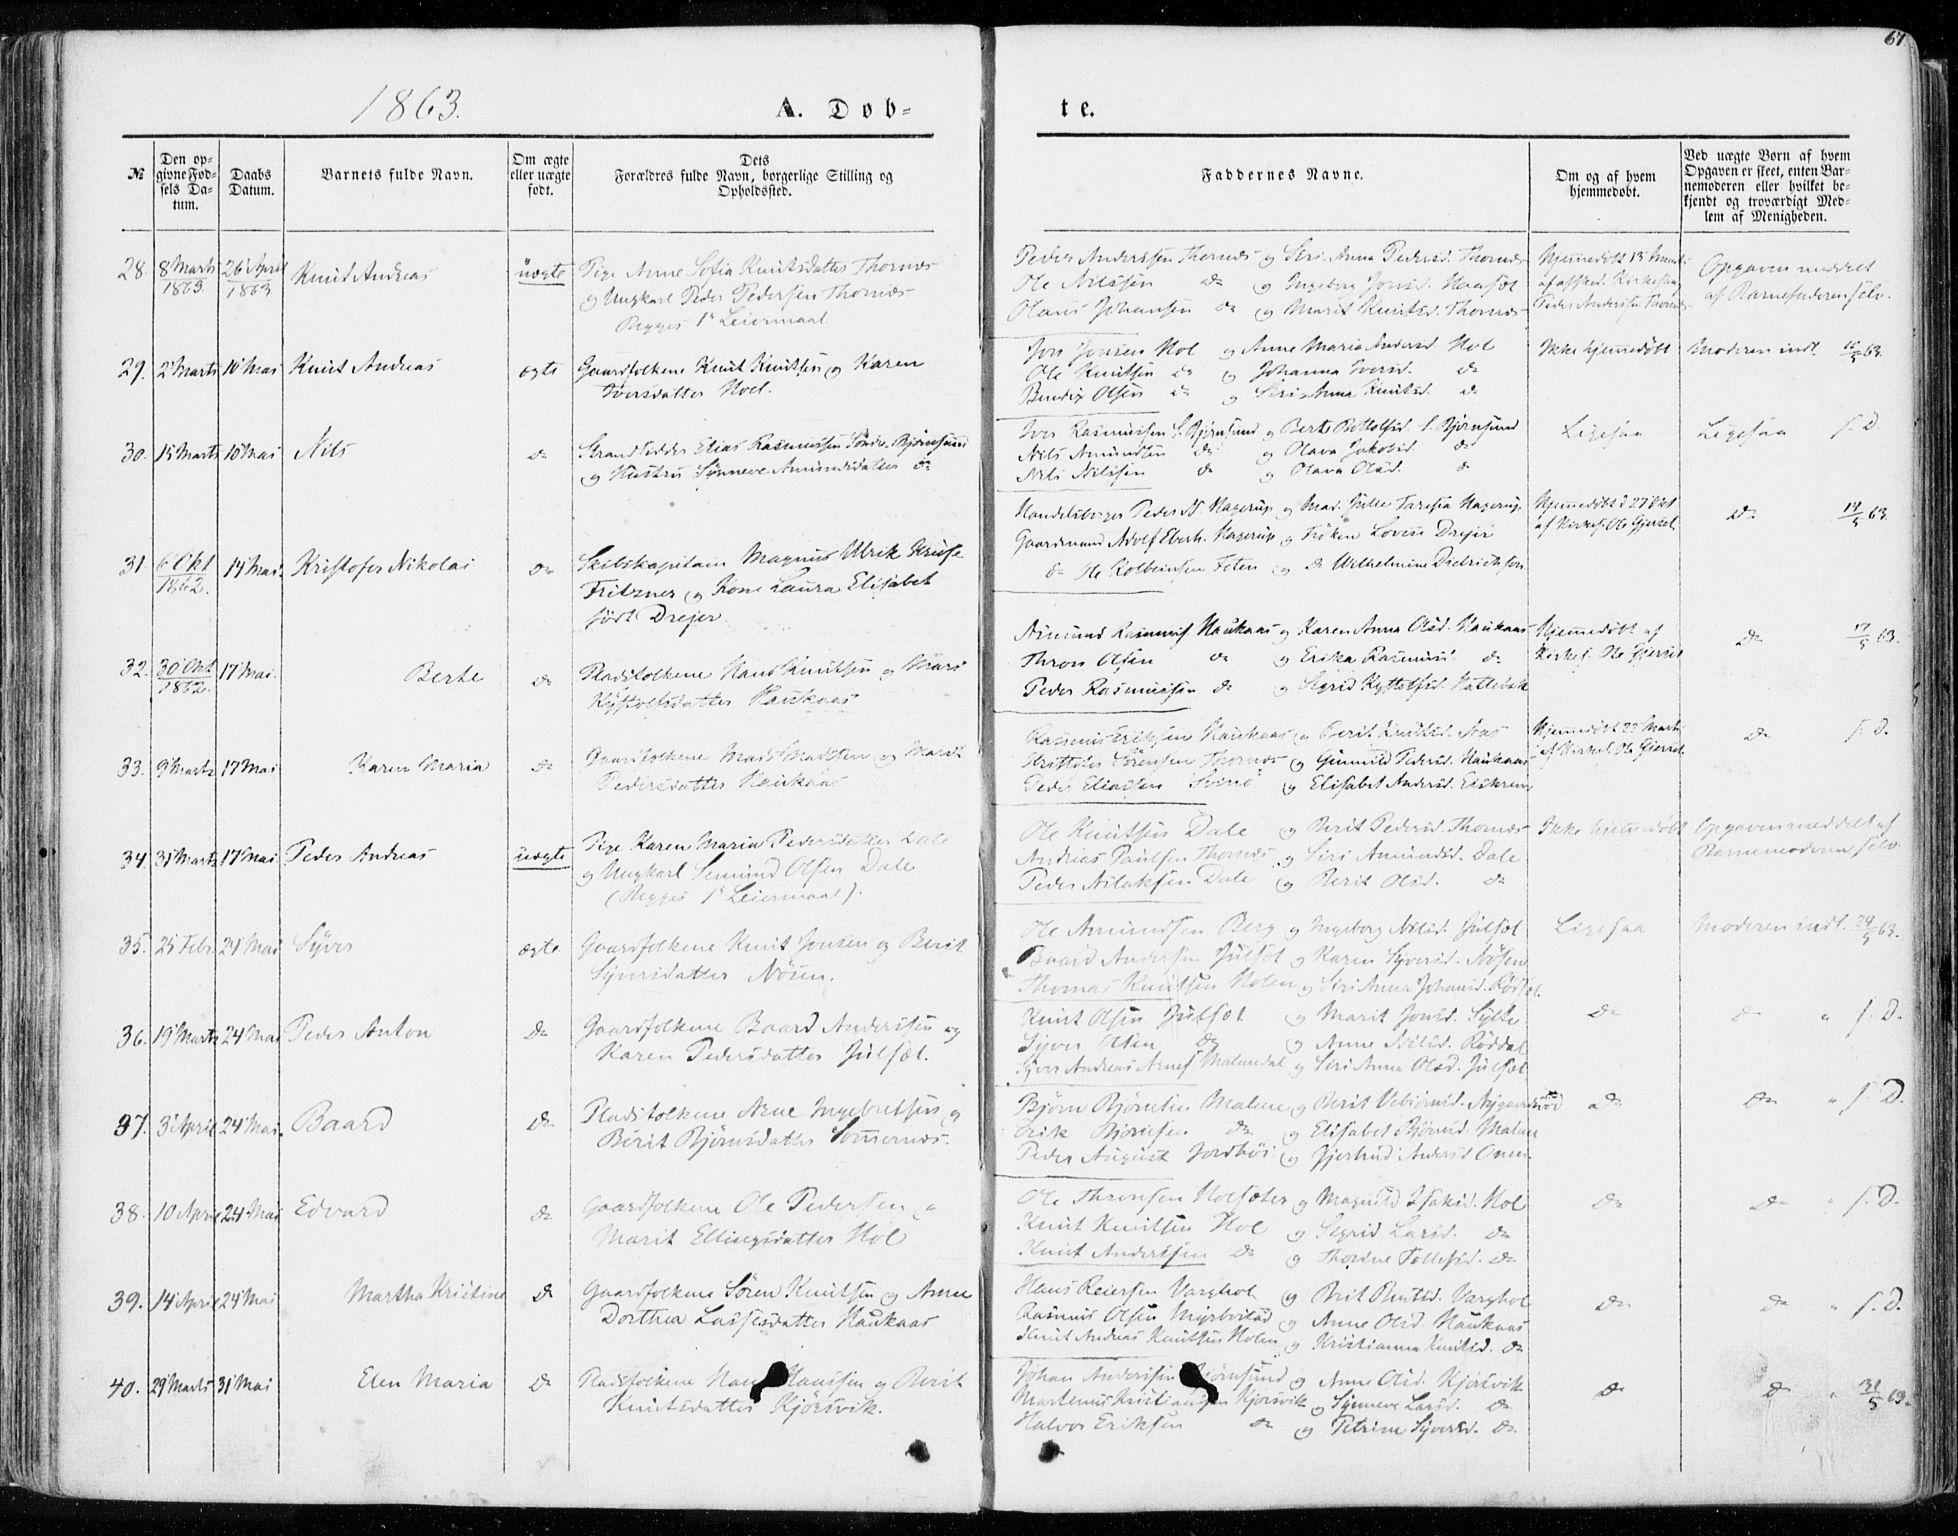 67
1863.
A. Døb-
te.
№
Den opgivne Fødsels Datum.
Daabs Datum.
Barnets fulde Navn.
Om ægte eller uægte født.
Dets Forældres fulde Navn, borgerlige Stilling og Opholdssted.
Faddernes Navne.
Om og af hvem hjemmedøbt.
Ved uægte Børn af hvem Opgaven er skeet, enten Barnemoderen eller hvilket bekjendt og troværdigt Medlem af Menigheden.
28. 8 Marts 1863. 26 April 1863 Knud Andreas uægte Pige Anne Sofia Knutsdatter Thornæs
og Ungkarl Peder Pedersen Thornæs
Begges 1ste Leiermaal
Peder Anderssen Thornæs og Siri Anna Pedersd. Thornæs
Ole Nilssen do og Ingeborg Jonsd.
Olaus Johansen do og Marit Knutsd. Thornæs
Hjemmedøbt
Peder Anderssen Thornæs
Opgaven meddelt
af Barnefaderen selv.
29. 2 Marts 10 Mai Knut Andreas ægte Gaardfolkene Knut Knutssen og Karen
Iversdatter Hoel.
Jon Jonsen Hol og Anne Maria Andersd Hol
Ole Knutsen do og Johanna Iversd. do
Bendix Olsen do og Siri Anna Knutsd. do
Ikke hjemmedøbt
Moderen indl. 10/5 63.
30. 15 Marts 10 Mai Nils do Strandsidder Elias Rasmussen Søndre Bjørnsund
og Hustru Synneve Amundsdatter do
Iver Rasmussen S. Bjørnsund og Berte Bottolfsd. S. Bjørnsund
Nils Amundsen do og Olava Jakobsd. do
Nils Nilssen do og Olava Olsd. do
Ligesaa
Ligesaa s. D.
31. 6 Okt 1862. 14 Mai. Kristofer Nikolai do Skibskapitain Magnus Ulrik Kruse
Fritzner og Kone Laura Elisabet
født Drejer
Handelsborger Peder N Hagerup og Mad. Julie Taresia Hagerup
Gaardmand Adolf Eberh. Hagerup og Frøken Lovise Drejer
do Ole Kolbeinsen Foten og do Wilhelmine Didrichsen
Hjemmedøbt d 27 Okt
af Kirkes. Ole Gjerset.
do 14/5 63.
32. 30 Okt 1862. 17 Mai. Berte do Pladsfolkene Hans Knutssen og Mari
Haukaas
Amund Rasmuss Haukaas og Karen Anna Olsd. Haukaas
Thron Olsen do og Erika Rasmusd do
Peder Rasmussen do og Sigrid
Hjemmedøbt af
Kirkes. Ole Gjerset
do 17/5 63.
33. 9 Marts 17 Mai Karen Maria do Gaardfolkene Mads Madssen og Marit
Pedersdatter Haukaas
Rasmus Eriksen Haukaas og Berit Knutsd.
Kristofer Sørensen Thornæs og Gunnild Pedersd. Haukaas
Peder Eliassen og Elisabet Andersd. Eiskrem
Hjemmedøbt 22 Marts
af Kirkes. Ole Gjerset.
do s. D.
34. 31 Marts 17 Mai Peder Andreas uægte Pige Karen Maria Pedersdatter Dale
og Ungkarl Semund Olsen Dale
(Begges 1ste Leiermaal).
Ole Knutsen Dale og Berit Pedersd. Thornæs
Andreas Paulsen Thornæs og Siri Amundsd. Dale
Peder Aslaksen Dale og Berit Olsd. do
Ikke hjemmedøbt
Opgaven meddelt af
Barnemoderen selv.
35. 25 Febr. 24 Mai Syver ægte Gaardfolkene Knut Jonsen og Berit
Syversdatter Nøsen.
Ole Amundsen Berg og Ingeborg Nilsd. Julset
Baard Andersen Julset og Karen Syversd. Nøsen
Thomas Knutsen Holen og Siri Anna Johansd.
Ligesaa
Moderen indl. 24/5 63.
36. 19 Marts 24 Mai Peder Anton do Gaardfolkene Baard Anderssen og
Karen Pedersdatter Julset.
Knut Olsen Julset og Marit Jonsd. Sylte
Syver Olsen do og Anne Nilsd. Røddal
Syver Andreas Arnes Malmedal og Siri Anna Olsd. Julset
do
do " s. D.
37. 3 April 24 Mai. Baard do Pladsfolkene Arne Ingebretsen og
Berit Bjørnsdatter Sommernæs.
Bjørn Bjørnsen Malme og Berit
Erik Bjørnsen do og Elisabet Bjørnsd. Malme
Peder August Jordhøi og Gjertrud Andersd
do
do " s. D.
38. 10 April 24 Mai Edvard do Gaardfolkene Ole Pedersen og
Marit Ellingsdatter Hol
Ole Thronsen Holsæter og Magnild Isaksd. Hol
Knut Knutsen Hol og Sigrid Larsd. do
Knut Anderssen do og Thordne Tollefsd. do
do
do " s. D.
39. 14 April 24 Mai Martha Kristine do Gaardfolkene Søren Knutsen og Anne
Dorthea Lassesdatter Haukaas
Hans Reiersen Varghol og Brit Knutsd. Varghol
Rasmus Olsen og Anne Olsd Haukaas
Knut Andreas Knutsen Holen og Kristianna Knutsd. do
do
do " s. D.
40. 29 Marts 31 Mai Elen Maria do Pladsfolkene Hans Hanssen og Berit
Knutsdatter Kjørsvik.
Johan Anderssen Bjørnsund og Anne Olsd. Kjørsvik
Martenus Kristianssen Kjørsvik og Synneve Larsd. do
Halvor Eriksen do og Petrine Syversd. do
do
do " 31/5 63.